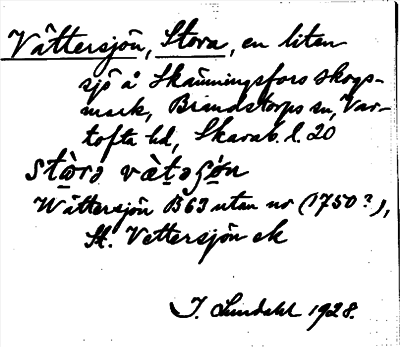 Vättersjön, Stora, en liten
sjö å Skämningsfors skogs-
mark, Brandstorps sn, Var-
tofta hd, Skarab. l. 20
stòrə vàtəʂön
Wättersjön B63 utan no (1750?),
St. Vettersjön ek
I. Lundahl 1928.